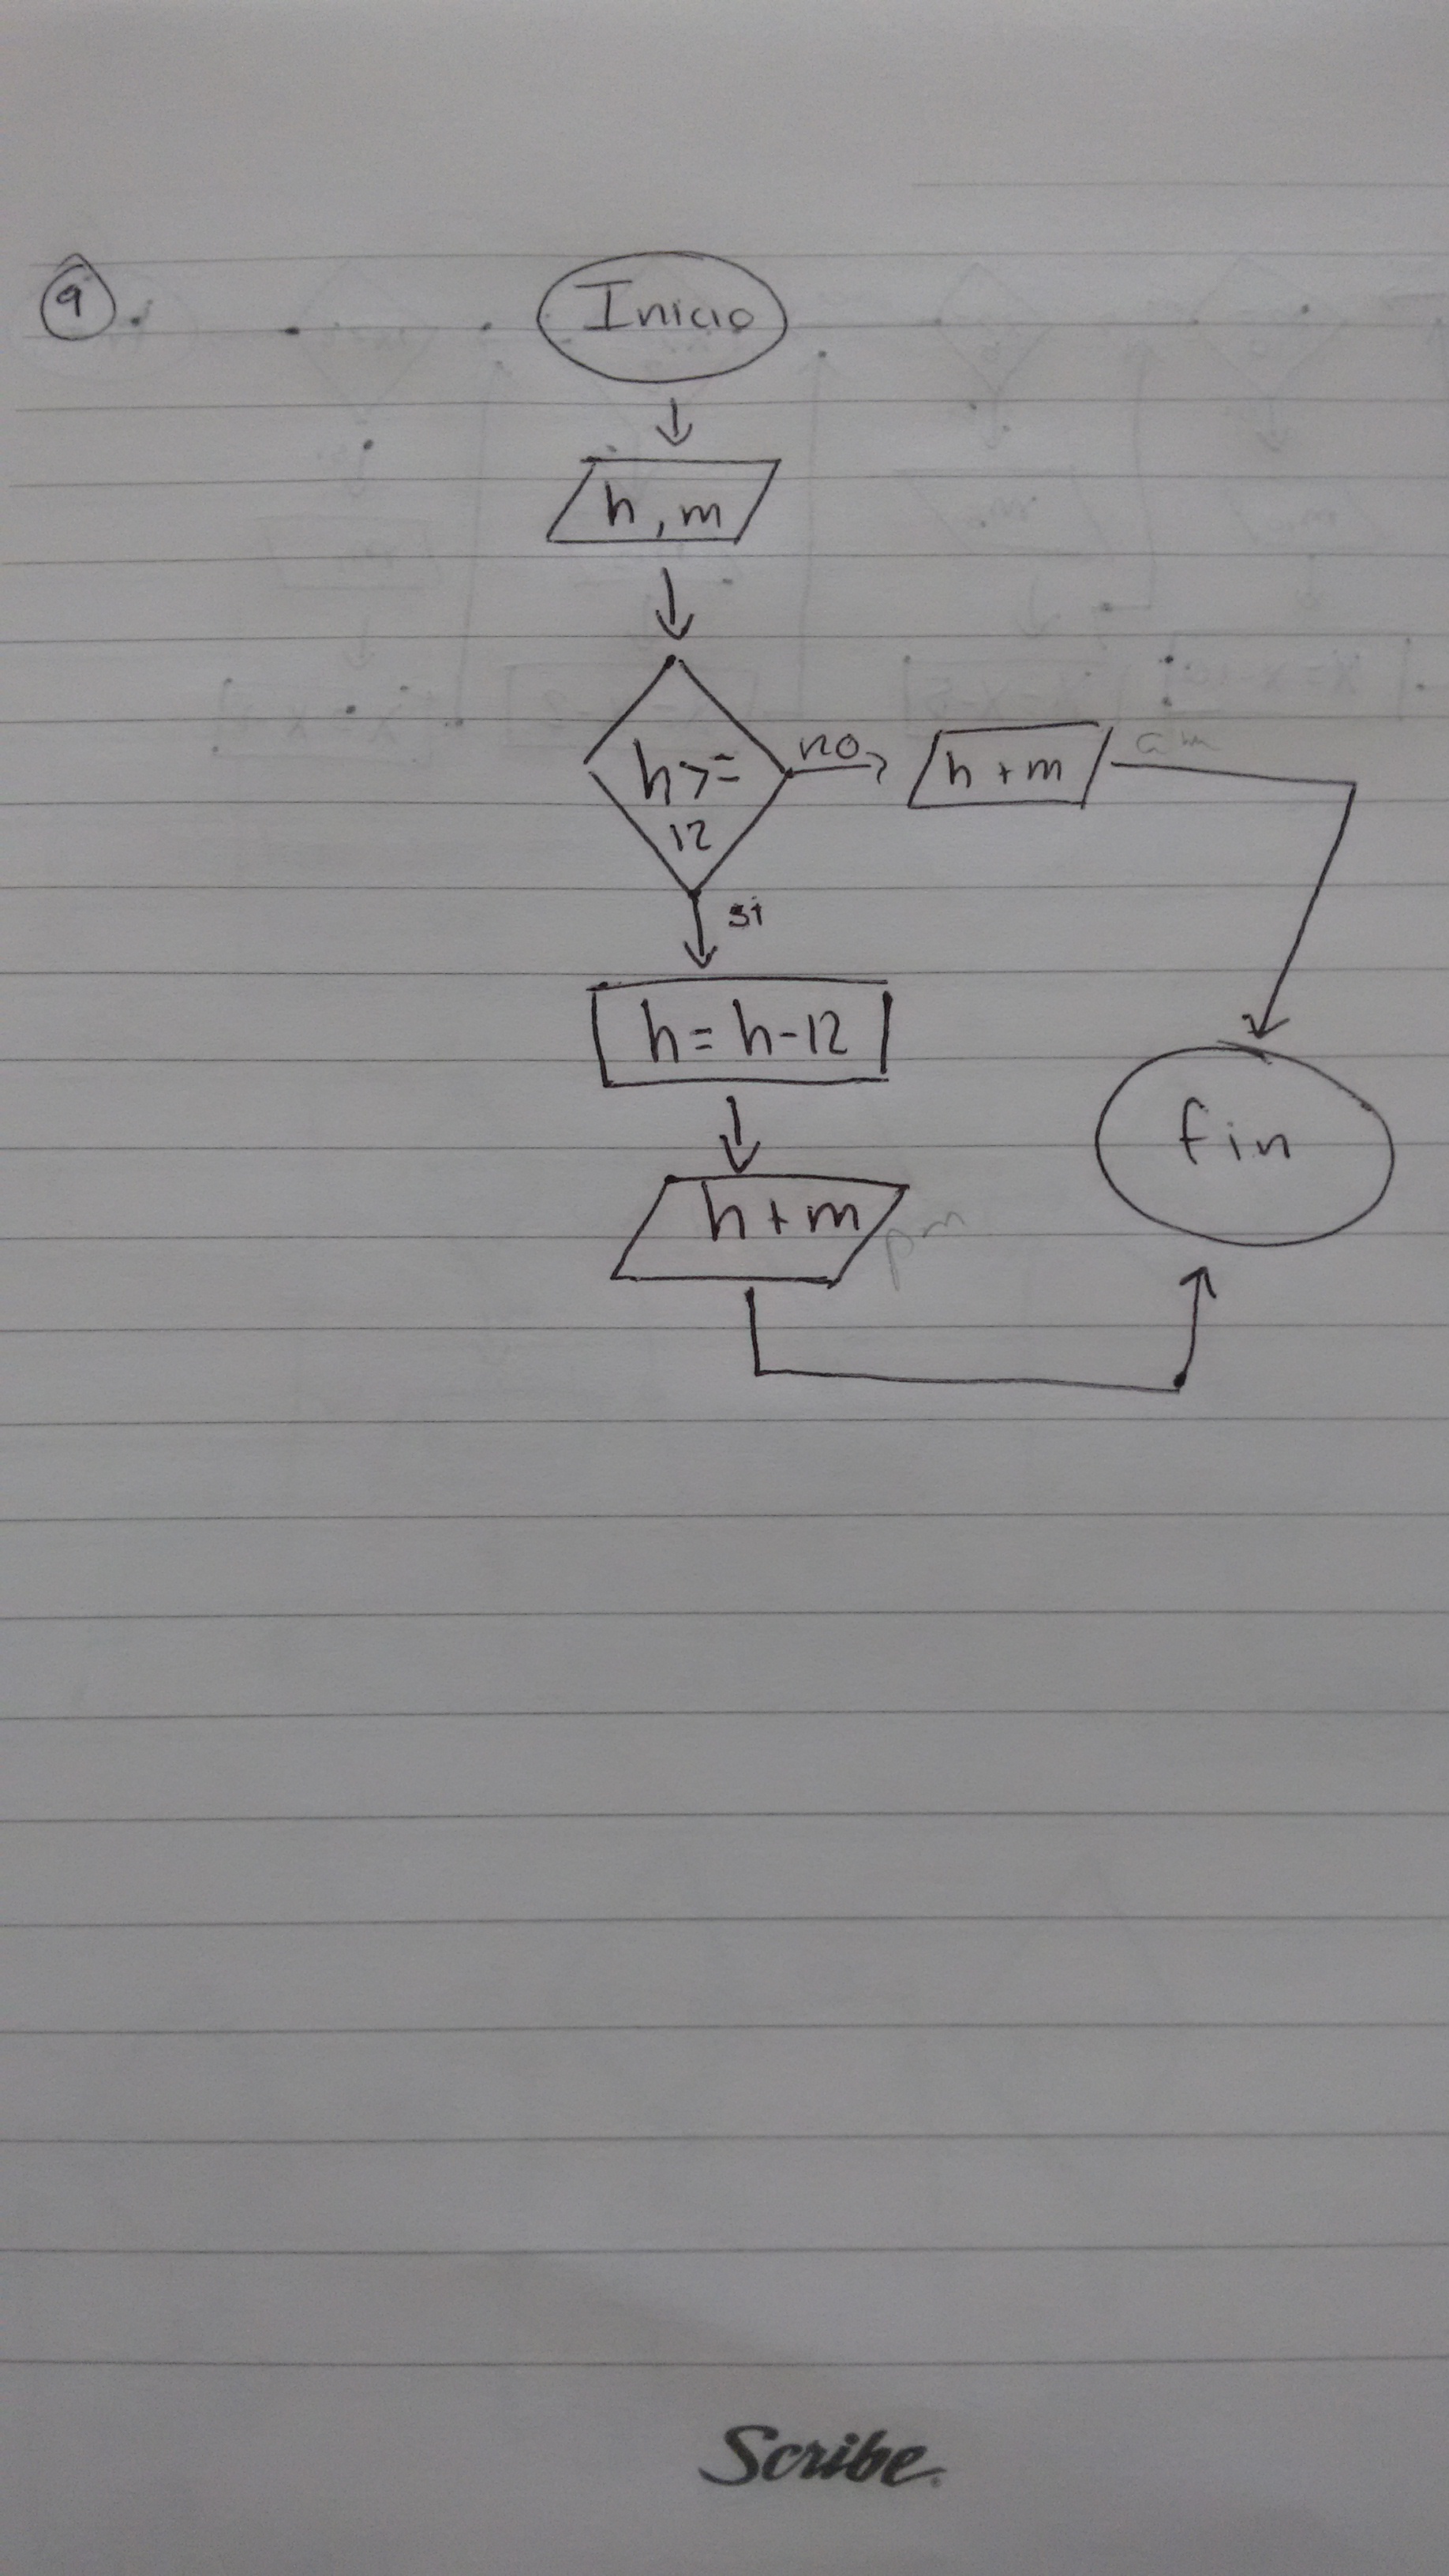 9
Inicio
h, m
h >=
12
no
h + m
am
si
h = h - 12
h + m
pm
fin
Scribe